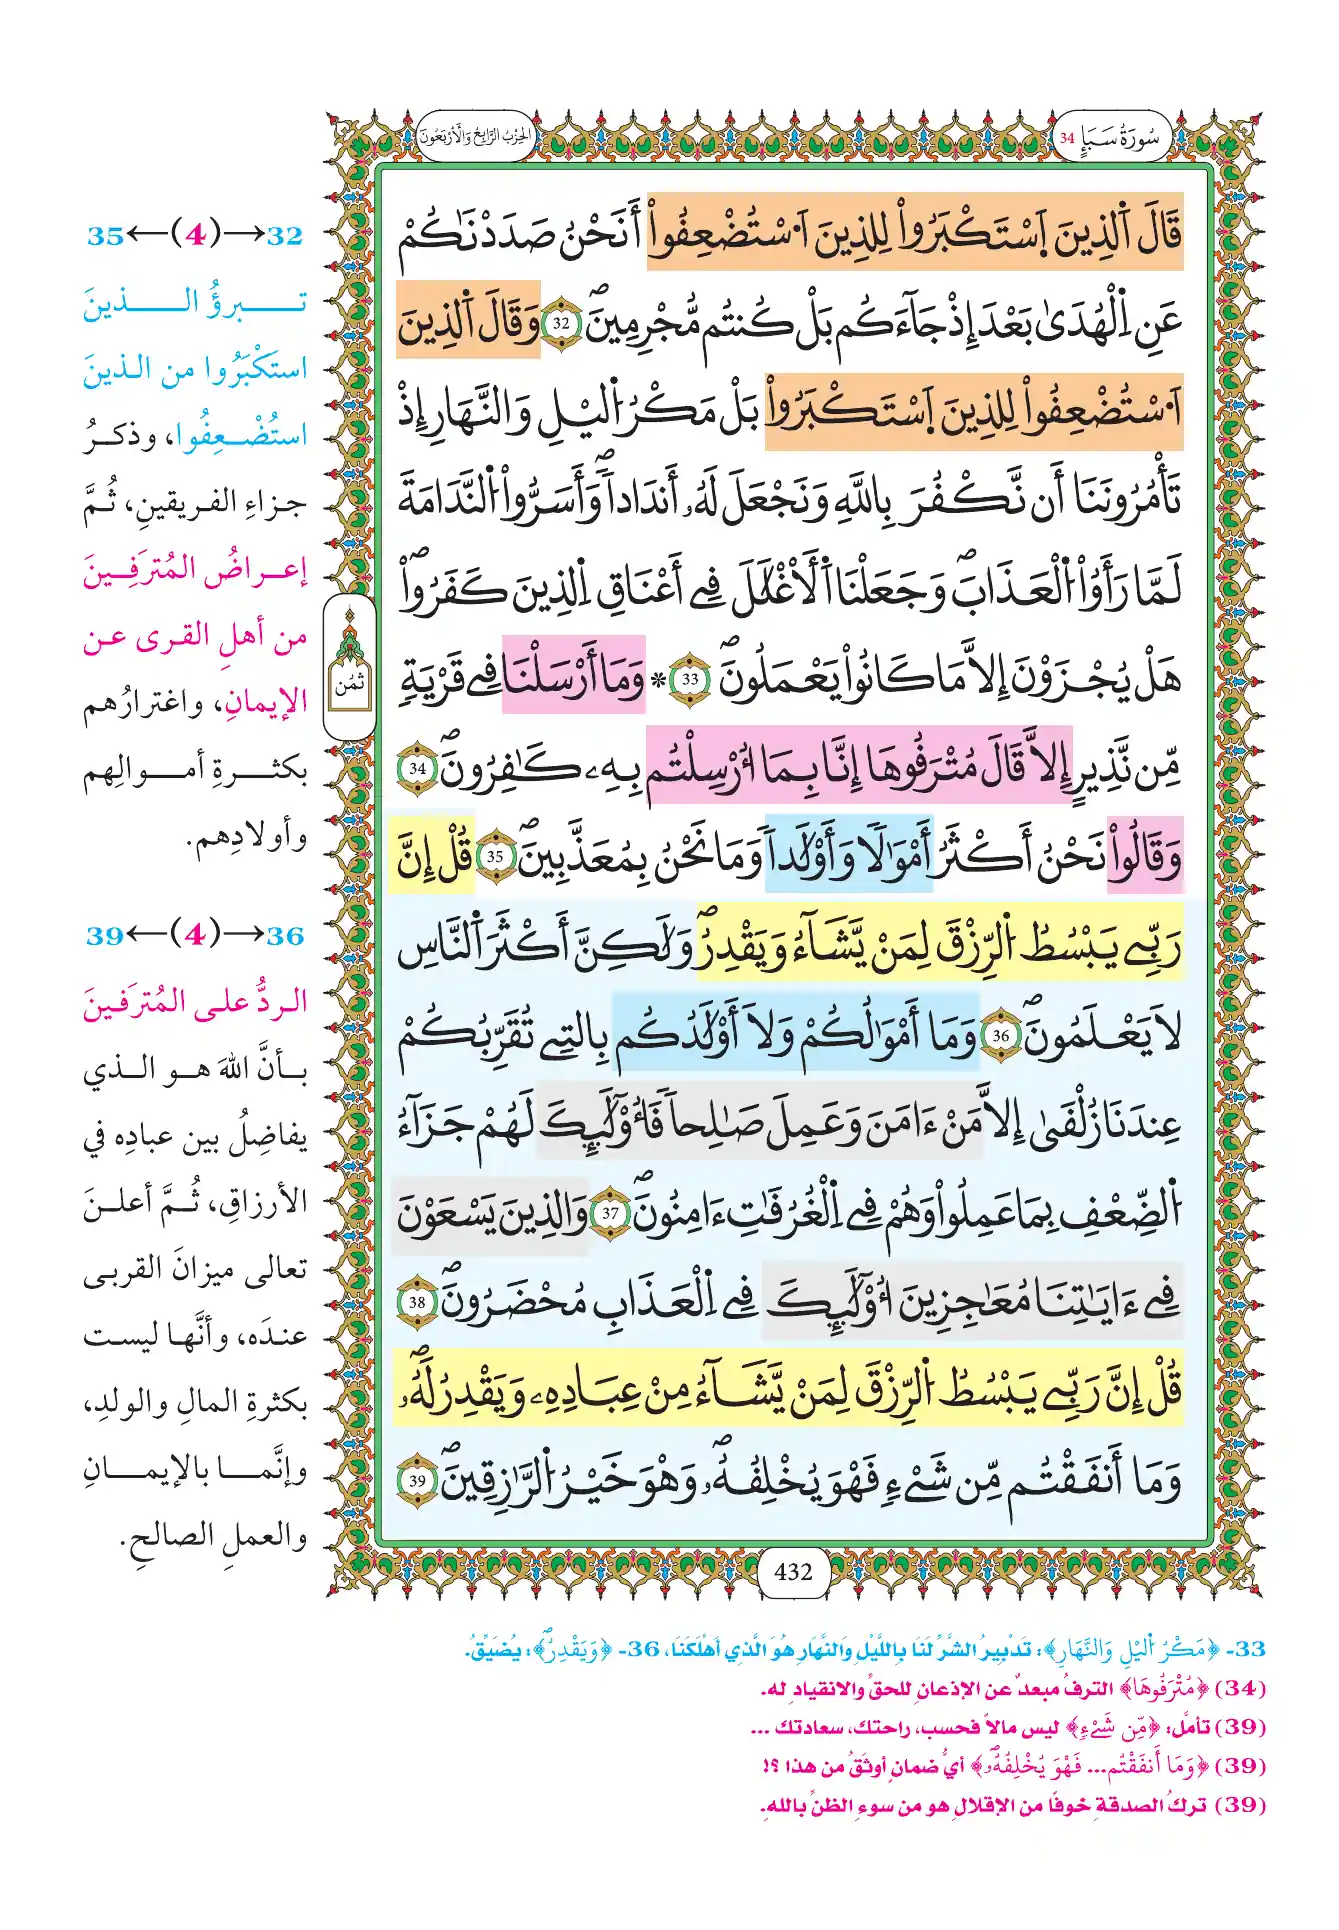 سُورَةُ سَبَإٍ 34
الحِزْبُ الرَّابِعُ وَالأَرْبَعُونَ
قَالَ اَ۬لذِينَ اَ۪سْتَكْبَرُواْ لِلذِينَ اَ۟سْتُضْعِفُواْ أَنَحْنُ صَدَدْنَٰكُمْ
عَنِ اِ۬لْهُدَىٰ بَعْدَ إِذْ جَآءَكُم بَلْ كُنتُم مُّجْرِمِينَۖ 32 وَقَالَ اَ۬لذِينَ
اَ۟سْتُضْعِفُواْ لِلذِينَ اَ۪سْتَكْبَرُواْ بَلْ مَكْرُ اُ۬ليْلِ وَالنَّهَارِ إِذْ
تَأْمُرُونَنَا أَن نَّكْفُرَ بِاللَّهِ وَنَجْعَلَ لَهُۥ أَندَاداٗۖ وَأَسَرُّواْ اُ۬لنَّدَامَةَ
لَمَّا رَأَوُاْ اُ۬لْعَذَابَۖ وَجَعَلْنَا اَ۬لْأَغْلَٰلَ فِے أَعْنَاقِ اِ۬لذِينَ كَفَرُواْۖ
هَلْ يُجْزَوْنَ إِلَّا مَا كَانُواْ يَعْمَلُونَۖ 33 * وَمَا أَرْسَلْنَا فِے قَرْيَةٖ
مِّن نَّذِيرٍ إِلَّا قَالَ مُتْرَفُوهَا إِنَّا بِمَا أُرْسِلْتُم بِهِۦ كَٰفِرُونَۖ 34
وَقَالُواْ نَحْنُ أَكْثَرُ أَمْوَٰلاٗ وَأَوْلَٰداٗ وَمَا نَحْنُ بِمُعَذَّبِينَۖ 35 قُلْ إِنَّ
رَبِّے يَبْسُطُ اُ۬لرِّزْقَ لِمَنْ يَّشَآءُ وَيَقْدِرُۖ وَلَٰكِنَّ أَكْثَرَ اَ۬لنَّاسِ
لَا يَعْلَمُونَۖ 36 وَمَا أَمْوَٰلُكُمْ وَلَا أَوْلَٰدُكُم بِالتِے تُقَرِّبُكُمْ
عِندَنَا زُلْفَىٰ إِلَّا مَنْ ءَامَنَ وَعَمِلَ صَٰلِحاٗ فَأُوْلَٰٓئِكَ لَهُمْ جَزَآءُ
اُ۬لضِّعْفِ بِمَا عَمِلُواْ وَهُمْ فِے اِ۬لْغُرُفَٰتِ ءَامِنُونَۖ 37 وَالذِينَ يَسْعَوْنَ
فِے ءَايَٰتِنَا مُعَٰجِزِينَ أُوْلَٰٓئِكَ فِے اِ۬لْعَذَابِ مُحْضَرُونَۖ 38
قُلْ إِنَّ رَبِّے يَبْسُطُ اُ۬لرِّزْقَ لِمَنْ يَّشَآءُ مِنْ عِبَادِهِۦ وَيَقْدِرُ لَهُۥۖ
وَمَا أَنفَقْتُم مِّن شَےْءٖ فَهْوَ يُخْلِفُهُۥۖ وَهْوَ خَيْرُ اُ۬لرَّٰزِقِينَۖ 39
ثُمُن
432
32→(4)←35
تبرؤُ الذينَ
استَكْبَرُوا من الذينَ
استُضْعِفُوا، وذكرُ
جزاءِ الفريقينِ، ثُمَّ
إعراضُ المُترَفِينَ
من أهلِ القرى عن
الإيمانِ، واغترارُهم
بكثرةِ أموالِهم
وأولادِهم.
36→(4)←39
الردُّ على المُترَفينَ
بأنَّ اللهَ هو الذي
يفاضِلُ بين عبادِه في
الأرزاقِ، ثُمَّ أعلنَ
تعالى ميزانَ القربى
عندَه، وأنَّها ليست
بكثرةِ المالِ والولدِ،
وإنَّما بالإيمانِ
والعملِ الصالحِ.
33- ﴿مَكْرُ اُ۬ليْلِ وَالنَّهَارِ﴾: تَدْبِيرُ الشَّرِّ لَنَا بِاللَّيْلِ وَالنَّهَارِ هُوَ الَّذِي أَهْلَكَنَا، 36- ﴿وَيَقْدِرُۖ﴾: يُضَيِّقُ.
(34) ﴿مُتْرَفُوهَا﴾ الترفُ مبعدٌ عن الإذعانِ للحقِّ والانقيادِ له.
(39) تأمَّل: ﴿مِّن شَےْءٖ﴾ ليس مالاً فحسب، راحتك، سعادتك ...
(39) ﴿وَمَا أَنفَقْتُم... فَهْوَ يُخْلِفُهُۥۖ﴾ أيُّ ضمانٍ أوثَقُ من هذا ؟!
(39) تركُ الصدقةِ خوفًا من الإقلالِ هو من سوءِ الظنِّ باللهِ.